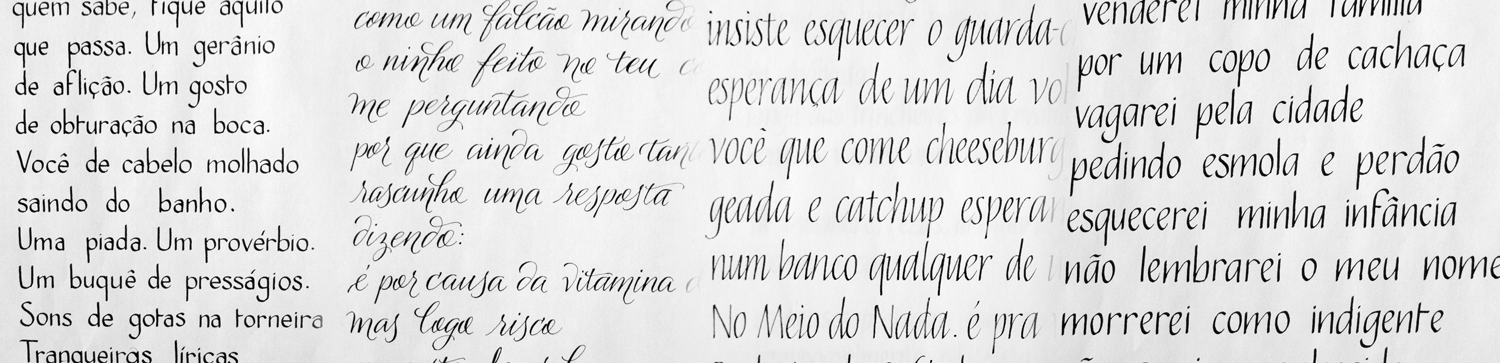 quem sabe, fique aquilo
que passa. Um gerânio
de aflição. Um gosto
de obturação na boca.
Você de cabelo molhado
saindo do banho.
Uma piada. Um provérbio.
Um buquê de presságios.
Sons de gotas na torneira
Tranqueiras líricas
como um falcão mirando
o ninho feito no teu
me perguntando
por que ainda gosto tan
rascunho uma resposta
dizendo:
é por causa da vitamina
mas logo risco
insiste esquecer o guarda-
esperança de um dia vol
você que come cheeseburg
geada e catchup esperan
num banco qualquer de
No Meio do Nada. é pra
venderei minha família
por um copo de cachaça
vagarei pela cidade
pedindo esmola e perdão
esquecerei minha infância
não lembrarei o meu nome
morrerei como indigente